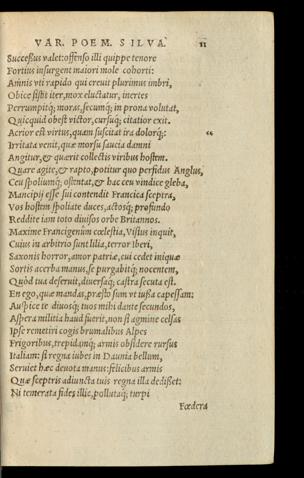 VAR. POEM. SILVA. 11
Successus valet: offenso illi quippe tenore
Fortius insurgent maiori mole cohorti:
Amnis vti rapido qui creuit plurimus imbri,
Obice si stit iter, mox eluctatur, inertes
Perrumpitq; moras, secumq; in prona volutat,
Quicquid obest victor, cursuq; citatior exit.
Acrior est virtus, quam suscitat ira dolorq;: “
Irritata venit, quæ morsu saucia damni
Angitur, & quærit collectis viribus hostem.
Quare agite, & rapto, potitur quo perfidus Anglus,
Ceu spoliumq; ostentat, & hac ceu vindice gleba,
Mancipij esse sui contendit Francica sceptra,
Vos hostem spoliate duces, actosq; profundo
Reddite iam toto diuisos orbe Britannos.
Maxime Francigenûm cœlestia, Vistus inquit,
Cuius in arbitrio sunt lilia, terror Iberi,
Saxonis horror, amor patriæ, cui cedet iniquæ
Sortis acerba manus, se purgabitq; nocentem,
Quòd tua deseruit, diuersaq; castra secuta est.
En ego, quæ mandas, præsto sum vt iussa capessam:
Auspice te diuosq; tuos mihi dante secundos,
Aspera militia haud fuerit, non si agmine celsas
Ipse remetiri cogis brumalibus Alpes
Frigoribus, trepidamq; armis obsidere rursus
Italiam: si regna iubes in Daunia bellum,
Seruiet hæc deuota manus: felicibus armis
Quæ sceptris adiuncta tuis regna illa dedisset:
Ni temerata fides illic, pollutaq; turpi
Fœdera